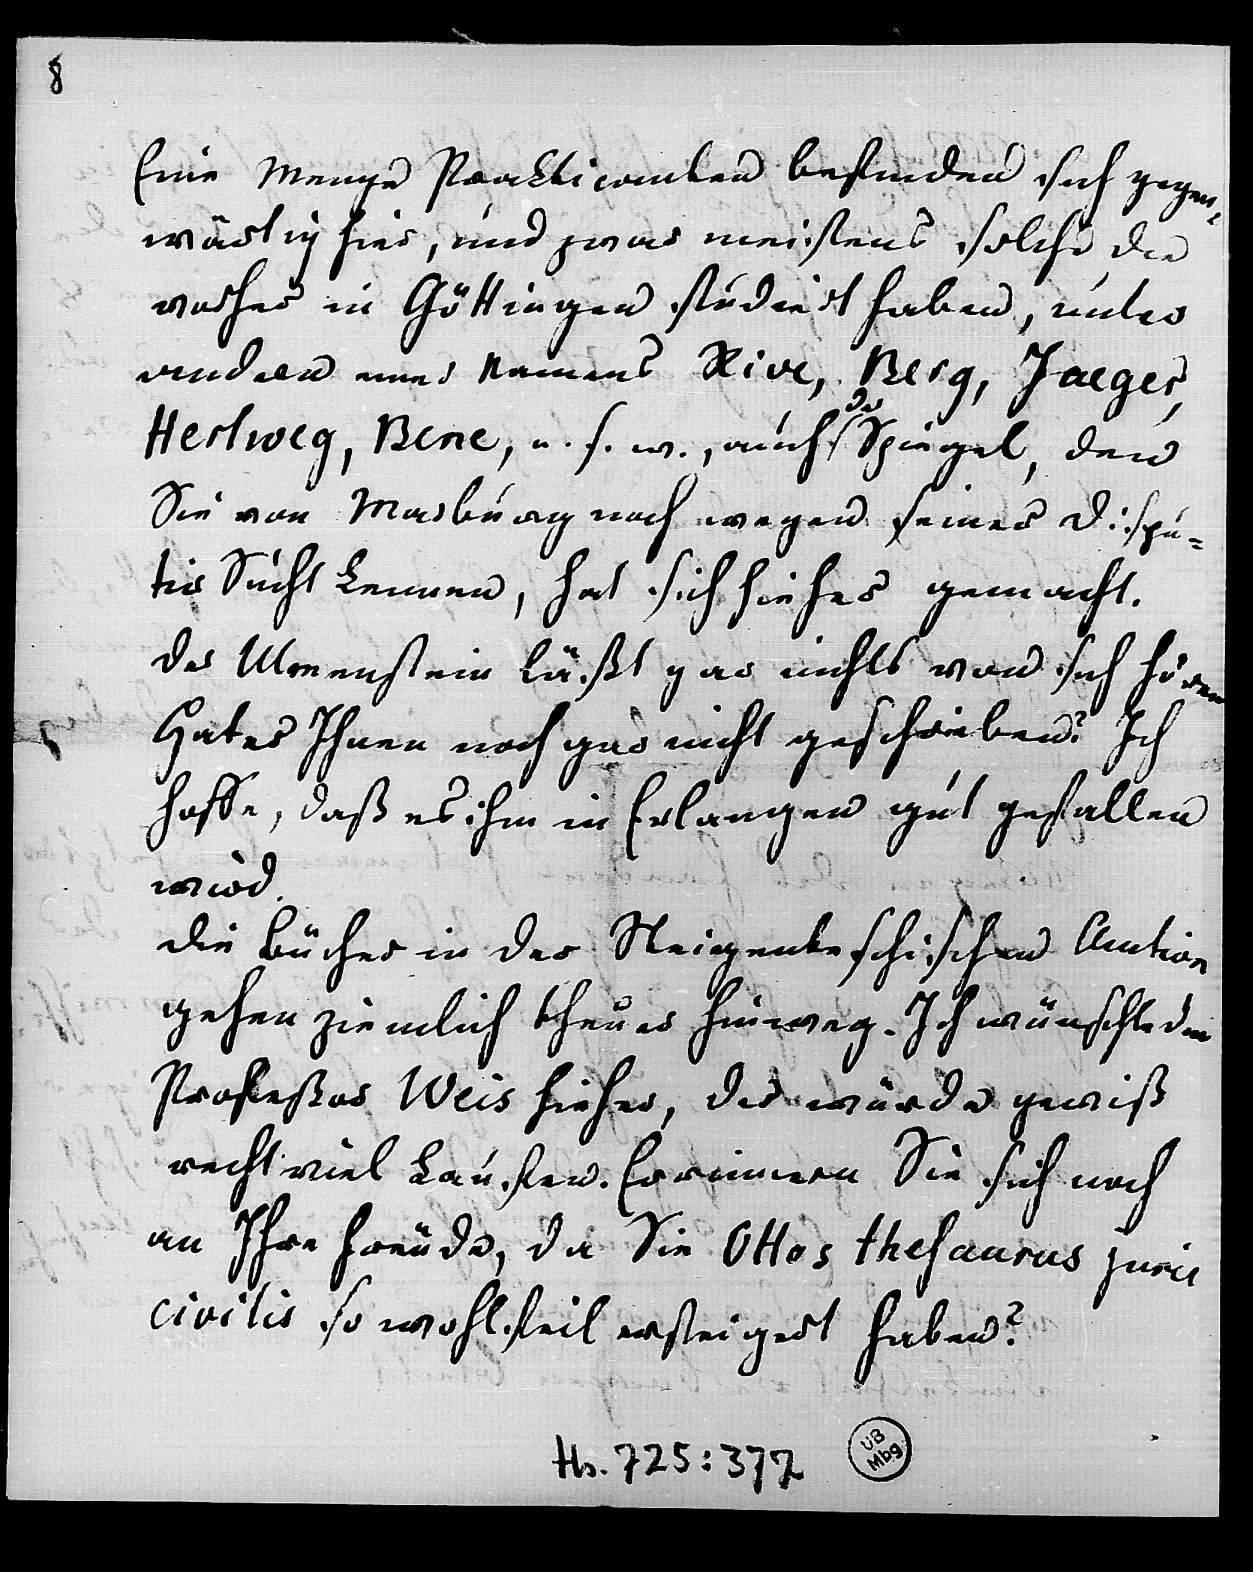 8
Eine Menge Practicanten befinden sich gegen-
wärtig hier, und zwar meistens solche die
vorher in Göttingen studiert haben, unter
andern eines Namens Rive, Berg, Jaeger,
Hertweg, Bene, u. s. w., auch der Spiegel, den
Sie von Marburg noch wegen seiner Dispu-
tir Sucht kennen, hat sich hieher gemacht.
Der Ulmenstein läßt gar nichts von sich hören
Hat er Ihnen noch gar nicht geschrieben? Ich
hoffe, daß es ihm in Erlangen gut gefallen
wird.
Die Bücher in der Steigenteschischen Auction
gehen ziemlich theuer hinweg. Ich wünschte den
Profeßor Weis hieher, der würde gewiß
recht viel kaufen. Errinnern Sie sich noch
an Ihre Freude, da Sie Ottos thesaurus juris
civilis so wohlfeil ersteigert haben?
Hs. 725:377
UB
Mbg